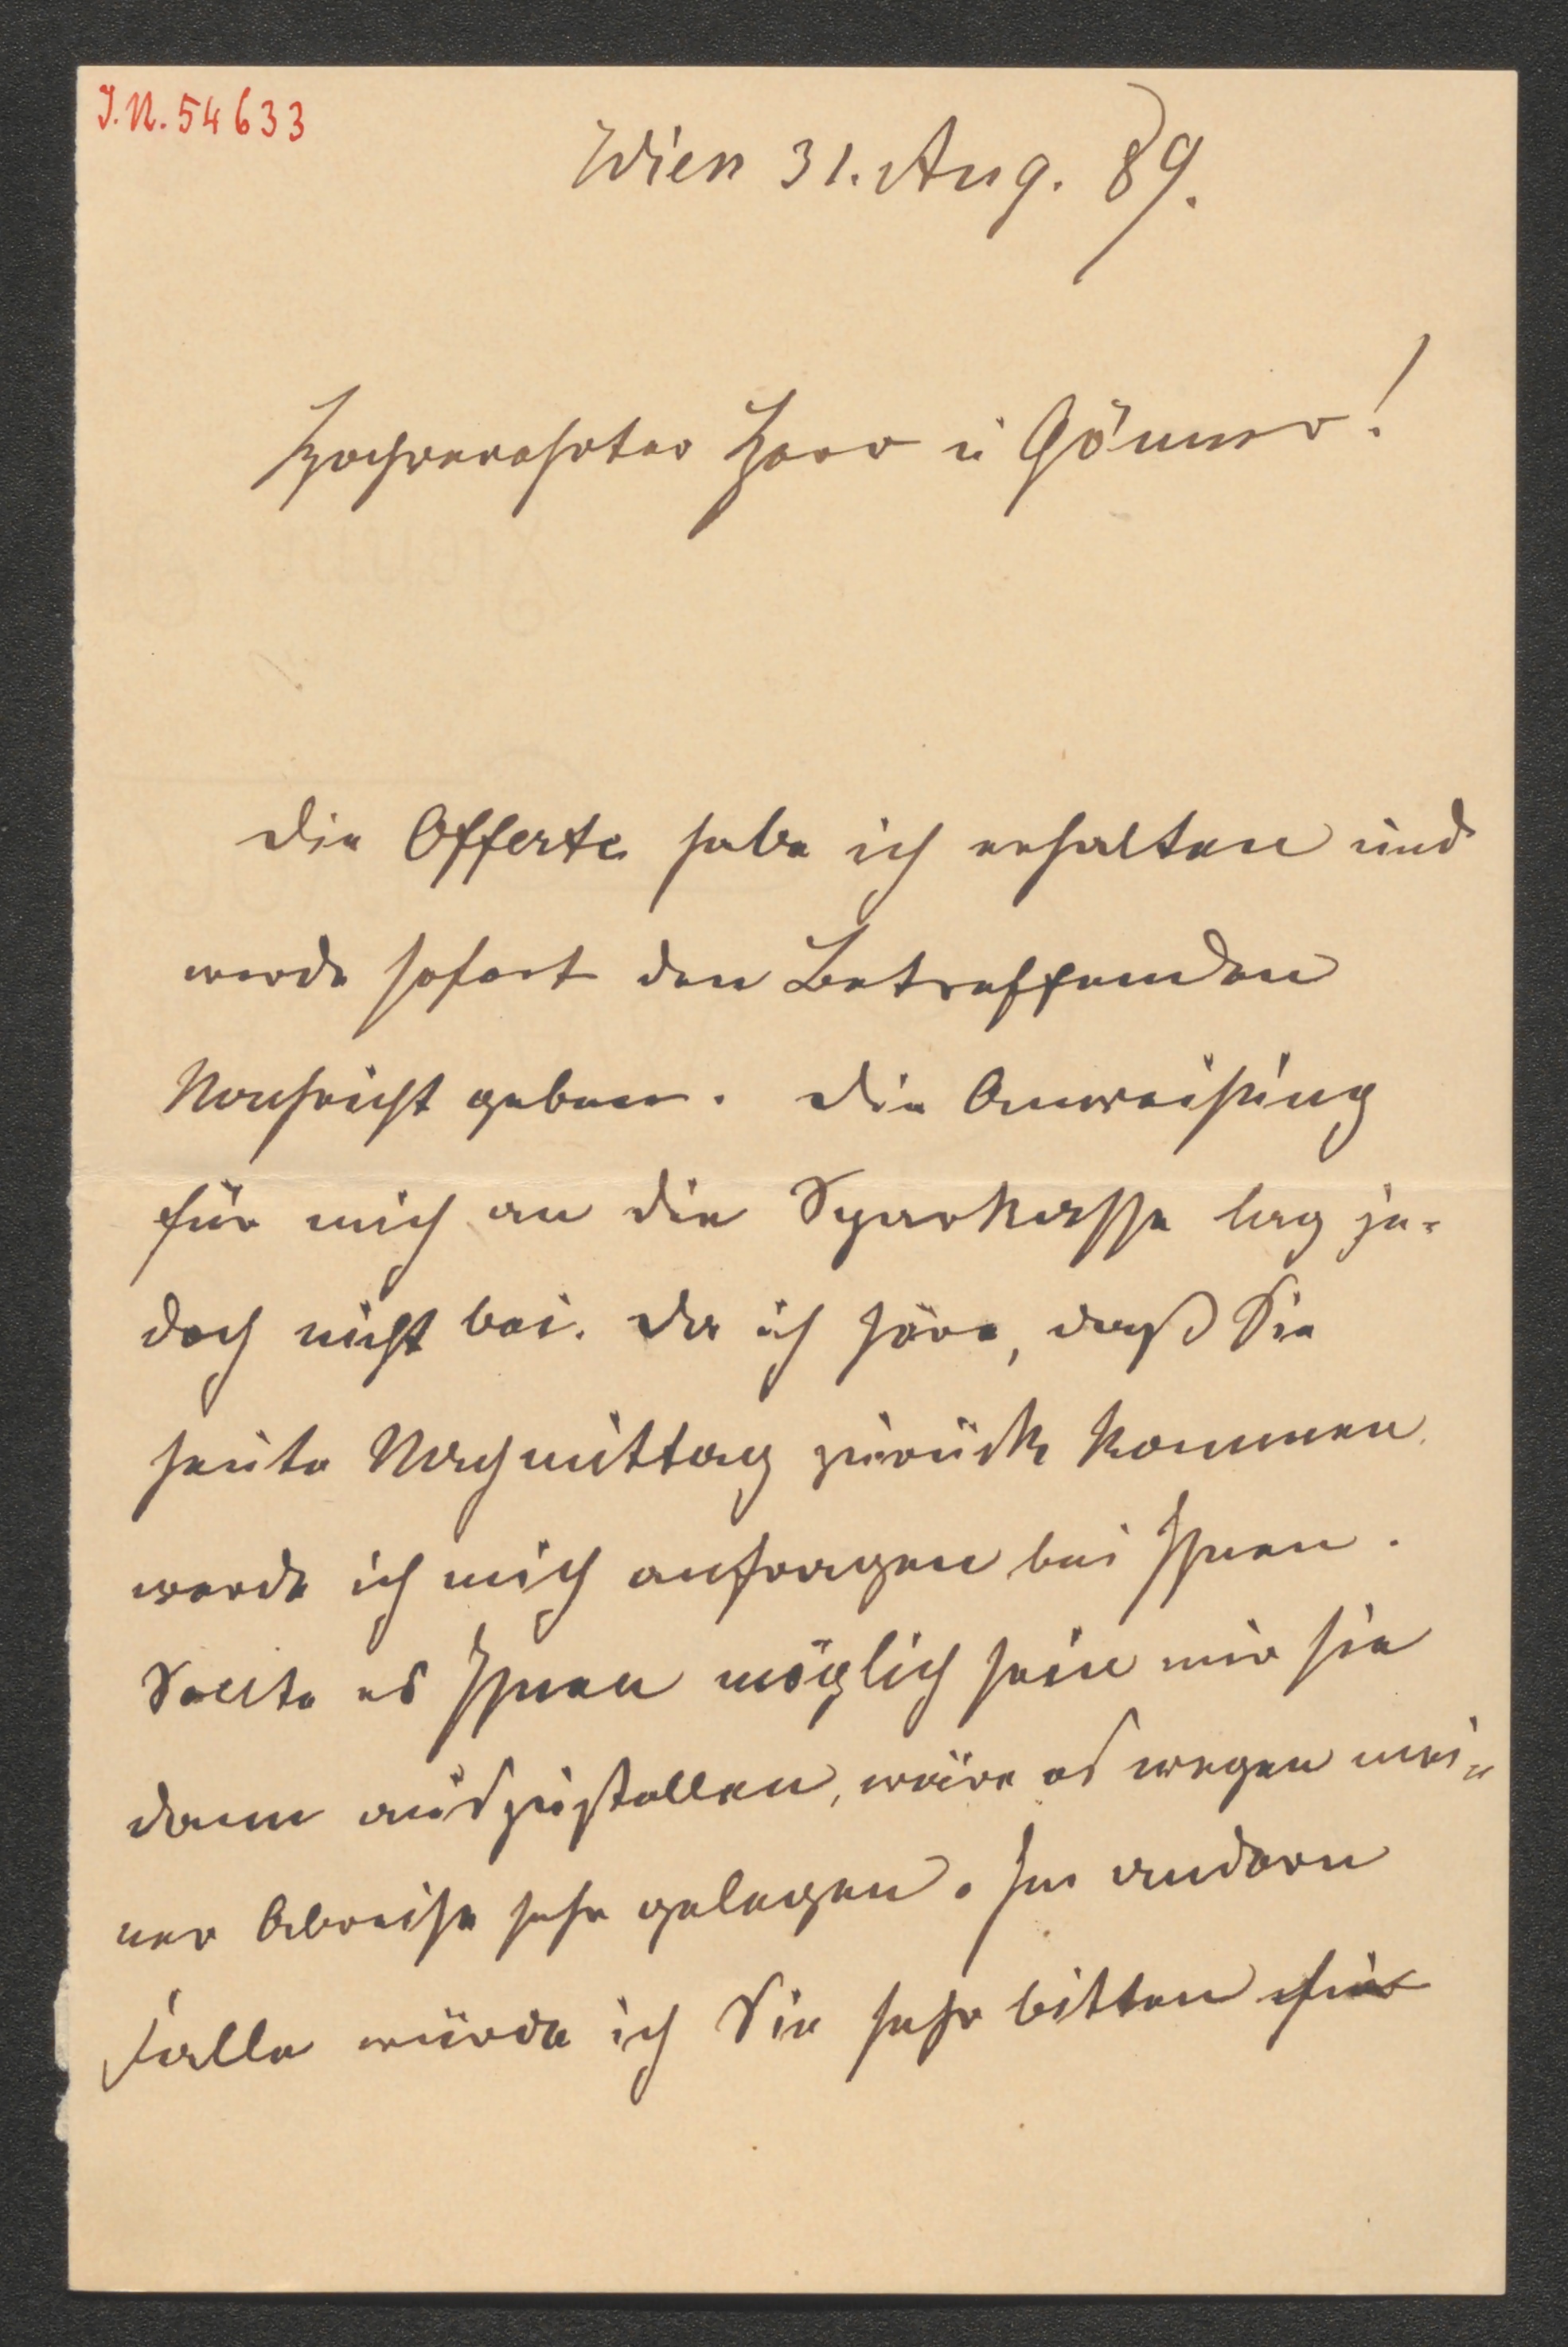 J.N. 54633
Wien 31. Aug. 89.
Hochverehrter Herr u Gönner!
Die Offerte habe ich erhalten und
werde sofort den Betreffenden
Nachricht geben. Die Anweisung
für mich an die Sparkasse lag je-
doch nicht bei. Da ich höre, daß Sie
heute Nachmittag zurück kommen
werde ich mich anfragen bei Ihnen.
Sollte es Ihnen möglich sein mir sie
dann auszustellen, wäre es wegen mei-
ner Abreise sehr gelegen. Im andern
Falle würde ich Sie sehr bitten für